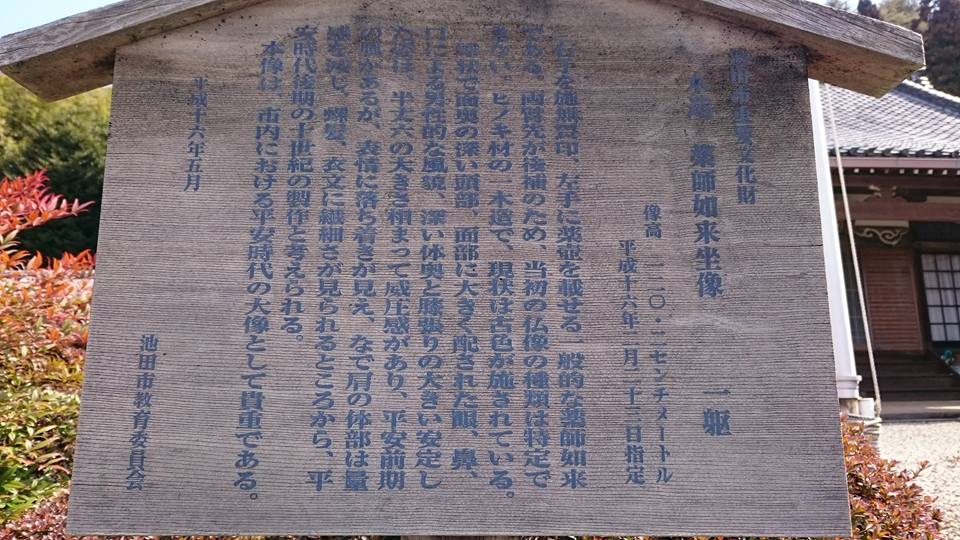 池田市重要文化財
木造 薬師如来坐像 一躯
像高 一一〇・二センチメートル
平成十六年二月二十三日指定
右手を施無畏印、左手に薬壺を載せる一般的な薬師如来
である。両臂先が後補のため、当初の仏像の種類は特定で
きない。ヒノキ材の一木造で、現状は古色が施されている。
塊状で面奥の深い頭部、面部に大きく配された眼、鼻、
口による男性的な風貌、深い体奥と膝張りの大きい安定し
た姿は、半丈六の大きさ相まって威圧感があり、平安前期
の風があるが、表情に落ち着きが見え、なで肩の体部は量
感を減じ、螺髪、衣文に繊細さが見られるところから、平
安時代後期の十世紀の製作と考えられる。
本像は、市内における平安時代の大像として貴重である。
平成十六年五月
池田市教育委員会